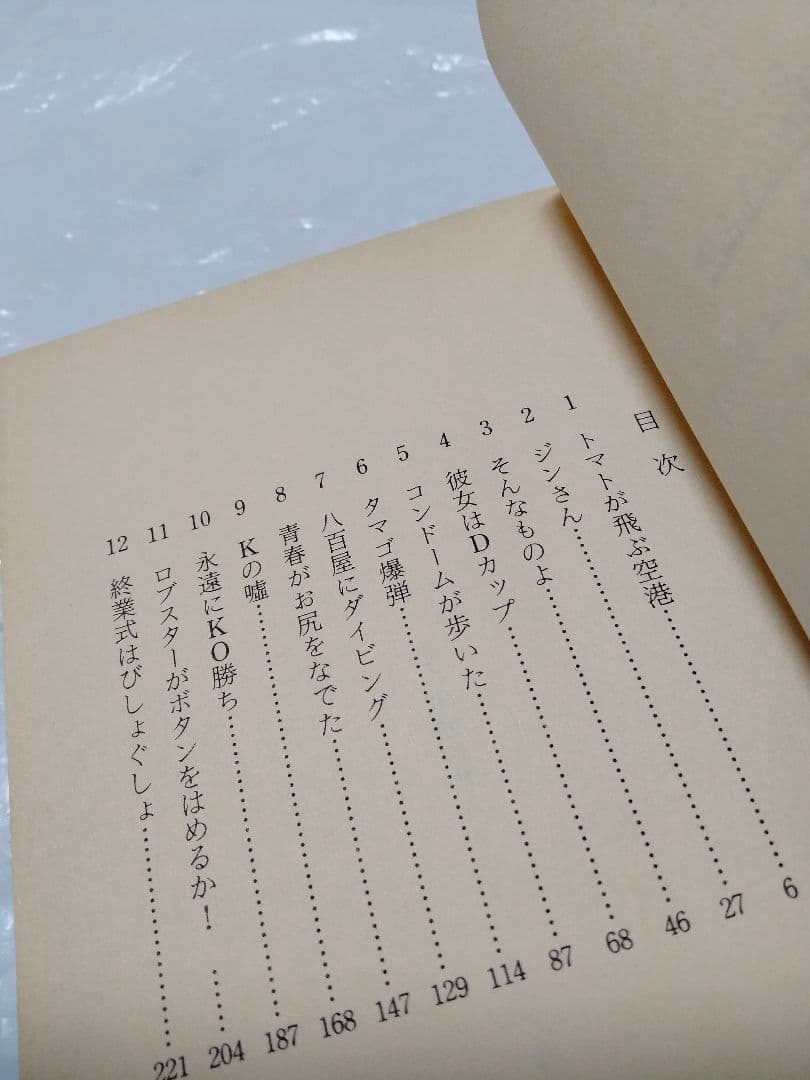 目次
1 トマトが飛ぶ空港……………………6
2 ジンさん……………………27
3 そんなものよ……………………46
4 彼女はDカップ……………………68
5 コンドームが歩いた……………………87
6 タマゴ爆弾……………………114
7 八百屋にダイビング……………………129
8 青春がお尻をなでた……………………147
9 Kの嘘……………………168
10 永遠にKO勝ち……………………187
11 ロブスターがボタンをはめるか！……204
12 終業式はびしょぐしょ……………………221